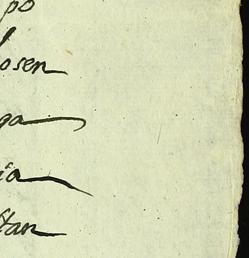 po
osen
ga
ia
stan